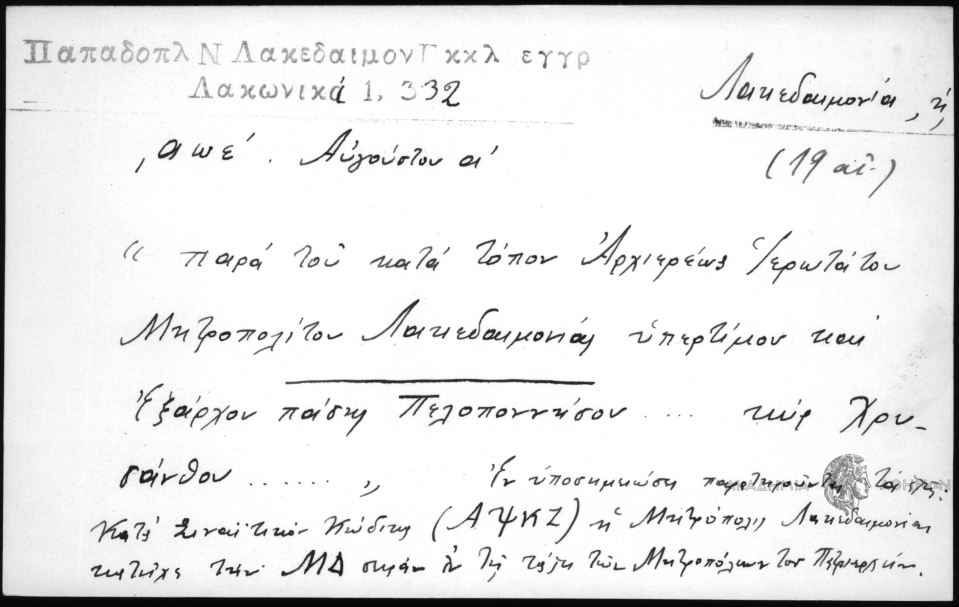 Παπαδοπλ Ν Λακεδαιμον Γκκλ εγγρ
Λακωνικά 1, 332
Λακεδαιμονία, ἡ
͵αωε΄. Αὐγούστου α΄
(19 αἰ.)
“ παρά τοῦ κατά τόπον Ἀρχιερέως Ἱερωτάτου
Μητροπολίτου Λακεδαιμονίας ὑπερτίμου καί
Ἐξάρχου πάσης Πελοποννήσου .... κύρ Χρυ-
σάνθου ...... „ Ἐν ὑποσημειώσει παρατηροῦνται τά ἑξῆς:
Κατά Σιναϊτικόν Κώδικα (ΑΨΚΖ) ἡ Μητρόπολις Λακεδαιμονίας
κατεῖχε τήν ΜΔ σειράν ἐν τῇ τάξει τῶν Μητροπόλεων τοῦ Πατριαρχείου.
ΑΚΑΔΗΜΙΑ ΑΘΗΝΩΝ